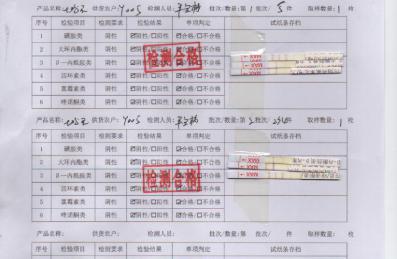 产品名称: 供货农户: Yoo5 检测人员: 批次/数量:第 1 批次/ 5 件 取样数量: 1 枚
序号 检验项目 检测要求 检验结果 单项判定 试纸条存档
1 磺胺类 阴性 ☑阴性/☐阳性 ☑合格/☐不合格
2 大环内酯类 阴性 阴性/☐阳性 合格/☐不合格
3 β一内酰胺类 阴性 阴性/☐阳性 合格/☐不合格
4 四环素类 阴性 阴性/☐阳性 合格/☐不合格
5 氯霉素类 阴性 ☑阴性/☐阳性 ☑合格/☐不合格
6 喹诺酮类 阴性 ☑阴性/☐阳性 ☑合格/☐不合格
检测合格
MAX
产品名称: 供货农户: Yoo5 检测人员: 批次/数量:第 批次/ 件 取样数量: 1 枚
序号 检验项目 检测要求 检验结果 单项判定 试纸条存档
1 磺胺类 阴性 ☑阴性/☐阳性 ☑合格/☐不合格
2 大环内酯类 阴性 阴性/☐阳性 合格/☐不合格
3 β一内酰胺类 阴性 阴性/☐阳性 合格/☐不合格
4 四环素类 阴性 阴性/☐阳性 合格/☐不合格
5 氯霉素类 阴性 ☑阴性/☐阳性 ☑合格/☐不合格
6 喹诺酮类 阴性 ☑阴性/☐阳性 ☑合格/☐不合格
检测合格
MAX
产品名称: 供货农户: 检测人员: 批次/数量:第 批次/ 件 取样数量: 枚
序号 检验项目 检测要求 检验结果 单项判定 试纸条存档